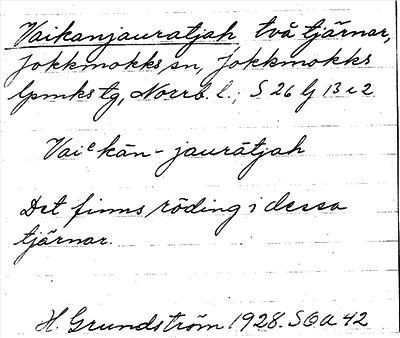 Vaikanjauratjah två tjärnar,
Jokkmokks sn, Jokkmokks
lpmks tg, Norrb. l.; S 26 G 13 i 2
Vaiᵉkān-jaurātjah
Det finns röding i dessa
tjärnar.
H. Grundström 1928. SOA 42